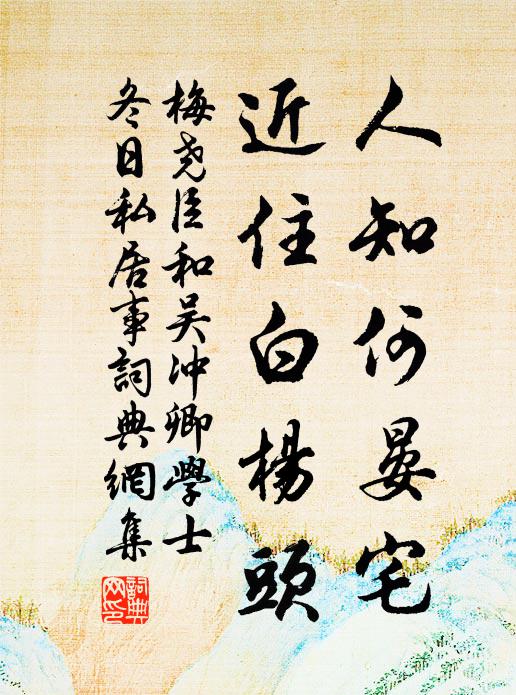 人知何晏宅
近住白楊頭
梅尧臣和吴冲卿學士
冬日私居事詞典網集
詞典網印